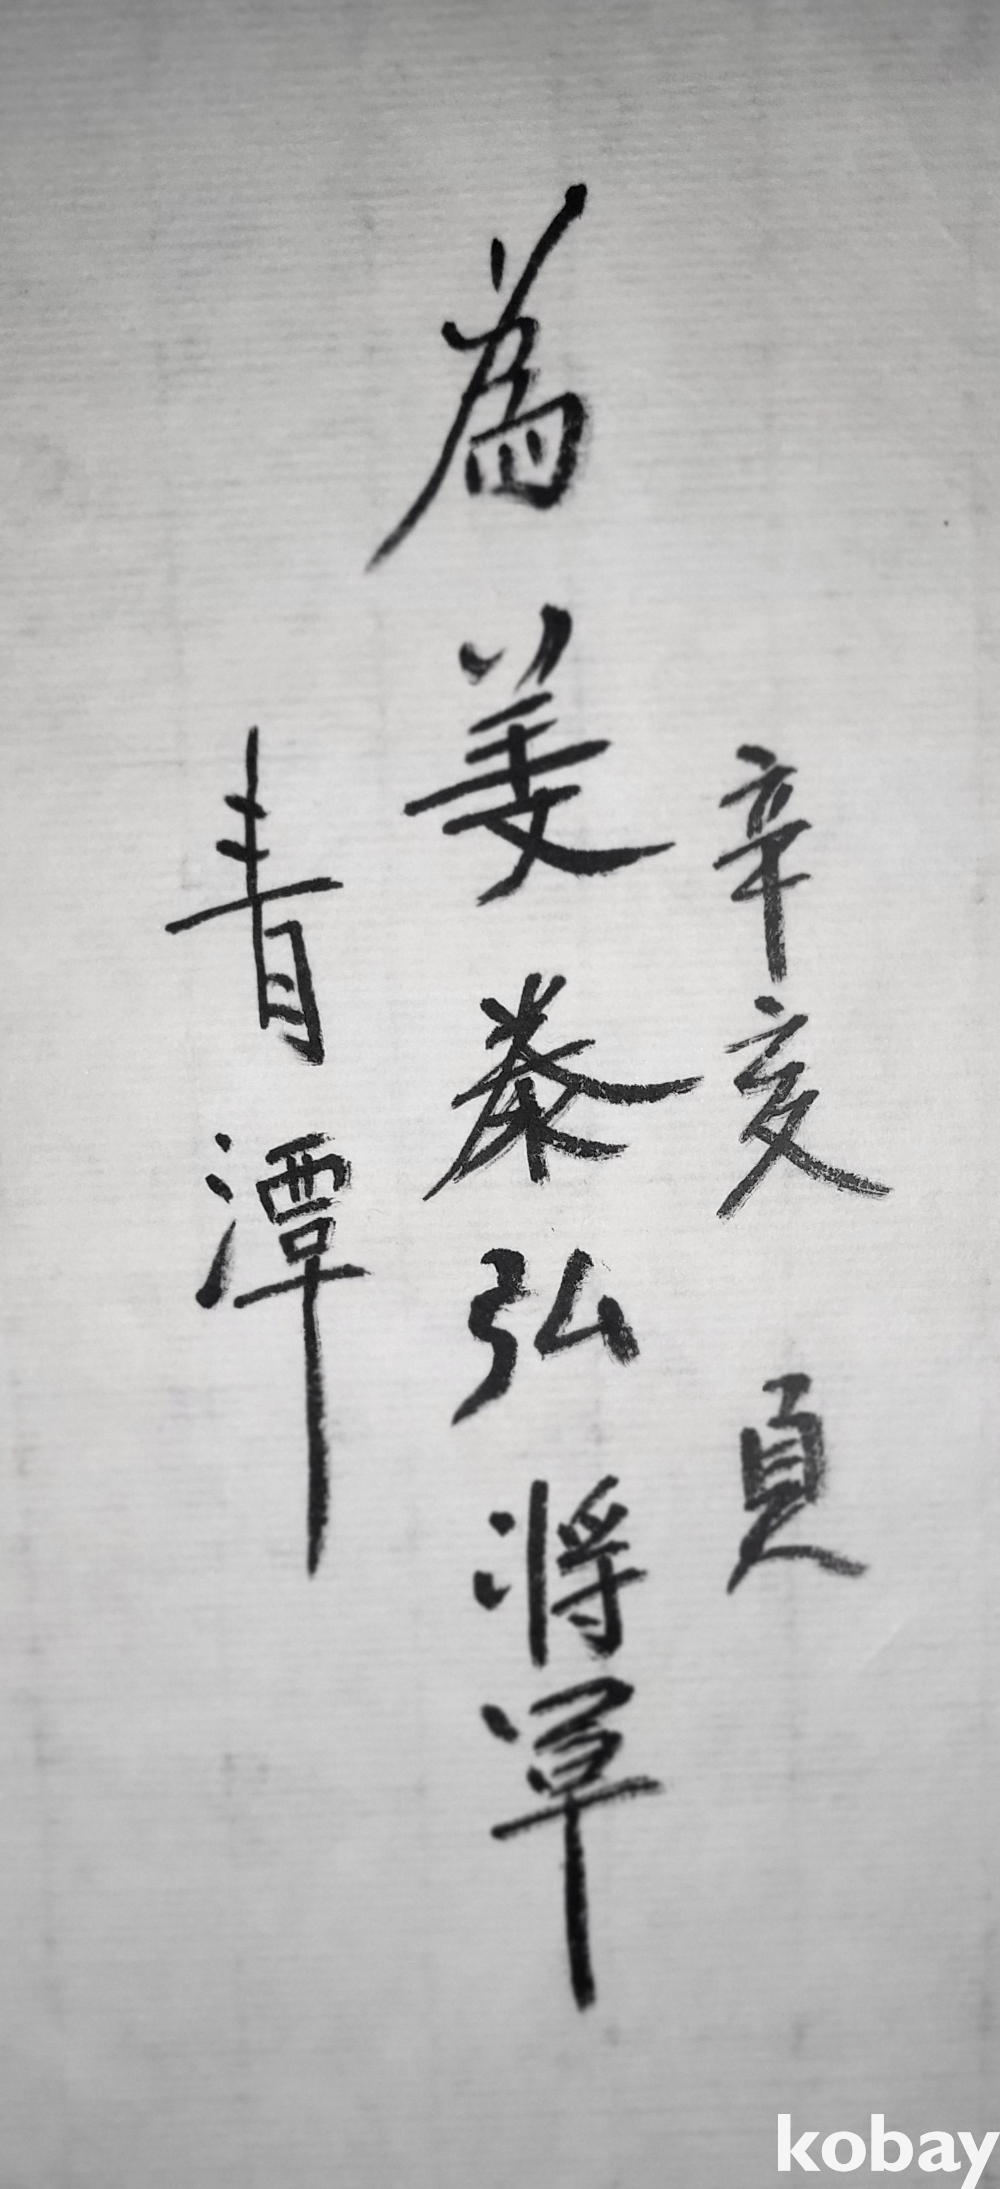 辛亥 夏
為 姜泰弘 將軍
青潭
kobay